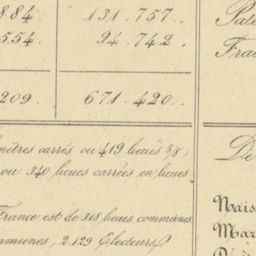 884. 131.757.
554. 94.742.
209. 671.420.
mètres carrés ou 419 lieues 3/8,
ou 340 lieues carrées en lieues
France est de 318 lieues communes
communes, 2.129 Electeurs
Pate
Fra
De
Nais
Mar